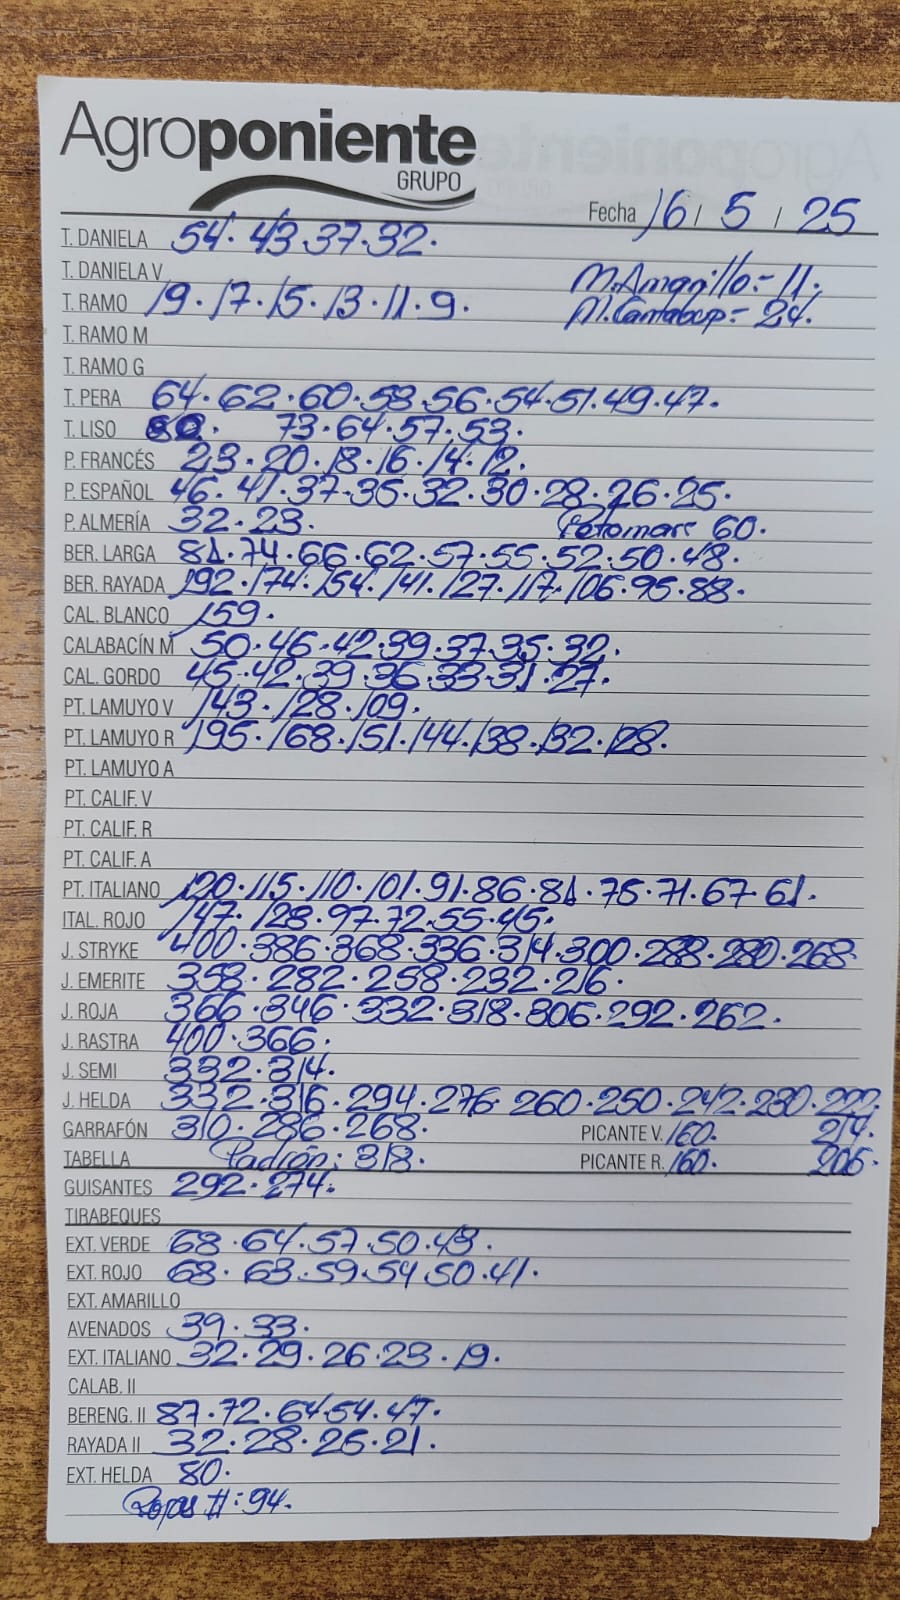 Agroponiente
GRUPO
Fecha 16 / 5 / 25
T. DANIELA 54. 43.37.32.
T. DANIELA V M.Amarillo=11.
T. RAMO 19.17.15.13.11.9. M.Cantaloup=24.
T. RAMO M
T. RAMO G
T. PERA 64.62.60.58.56.54.51.49.47.
T. LISO 80. 73.64.57.53.
P. FRANCÉS 23.20.18.16.14.12.
P. ESPAÑOL 46.41.37.35.32.30.28.26.25.
P. ALMERÍA 32.23. 60.
BER. LARGA 81.74.66.62.57.55.52.50.48.
BER. RAYADA 192.174.154.141.127.117.106.95.88.
CAL. BLANCO 159.
CALABACÍN M 50.46.42.39.37.35.32.
CAL. GORDO 45.42.39.36.33.31.27.
PT. LAMUYO V 143.128.109.
PT. LAMUYO R 195.168.151.144.138.132.128.
PT. LAMUYO A
PT. CALIF. V
PT. CALIF. R
PT. CALIF. A
PT. ITALIANO 120.115.110.101.91.86.81.75.71.67.61.
ITAL. ROJO 147.128.97.72.55.45.
J. STRYKE 400.386.368.336.314.300.288.280.268
J. EMERITE 358.282.258.232.216.
J. ROJA 366.346.332.318.306.292.262.
J. RASTRA 400.366.
J. SEMI 332.314.
J. HELDA 332.316.294.276.260.250.242.230.222.
GARRAFÓN 310.286.268. PICANTE V. 160. 214.
TABELLA Padrón: 318. PICANTE R. 160. 206.
GUISANTES 292.274.
TIRABEQUES
EXT. VERDE 68.64.57.50.43.
EXT. ROJO 68.63.59.54.50.41.
EXT. AMARILLO
AVENADOS 39.33.
EXT. ITALIANO 32.29.26.23.19.
CALAB. II
BERENG. II 87.72.64.54.47.
RAYADA II 32.28.26.21.
EXT. HELDA 80.
Rojas II: 94.